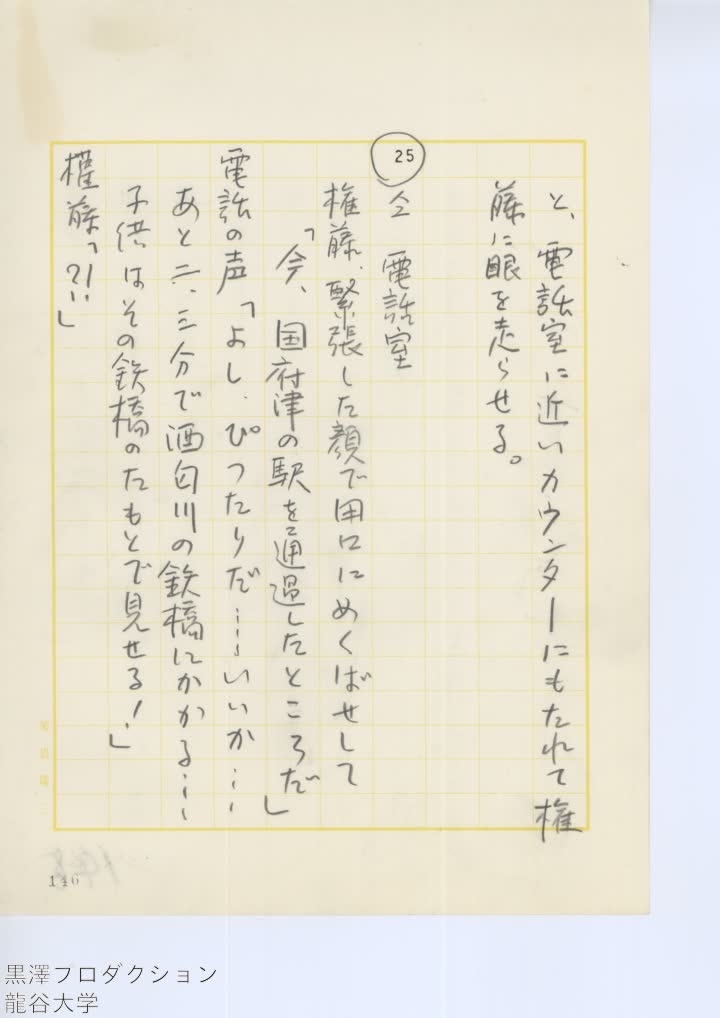 と、電話室に近いカウンターにもたれて権
藤に眼を走らせる。
25
仝 電話室
権藤、緊張した顔で田口にめくばせして
「今、国府津の駅を通過したところだ」
電話の声「よし、ぴったりだ……いいか……
あと二、三分で酒匂川の鉄橋にかかる……
子供はその鉄橋のたもとで見せる！」
権藤「?!……」
146
黒澤プロダクション
龍谷大学